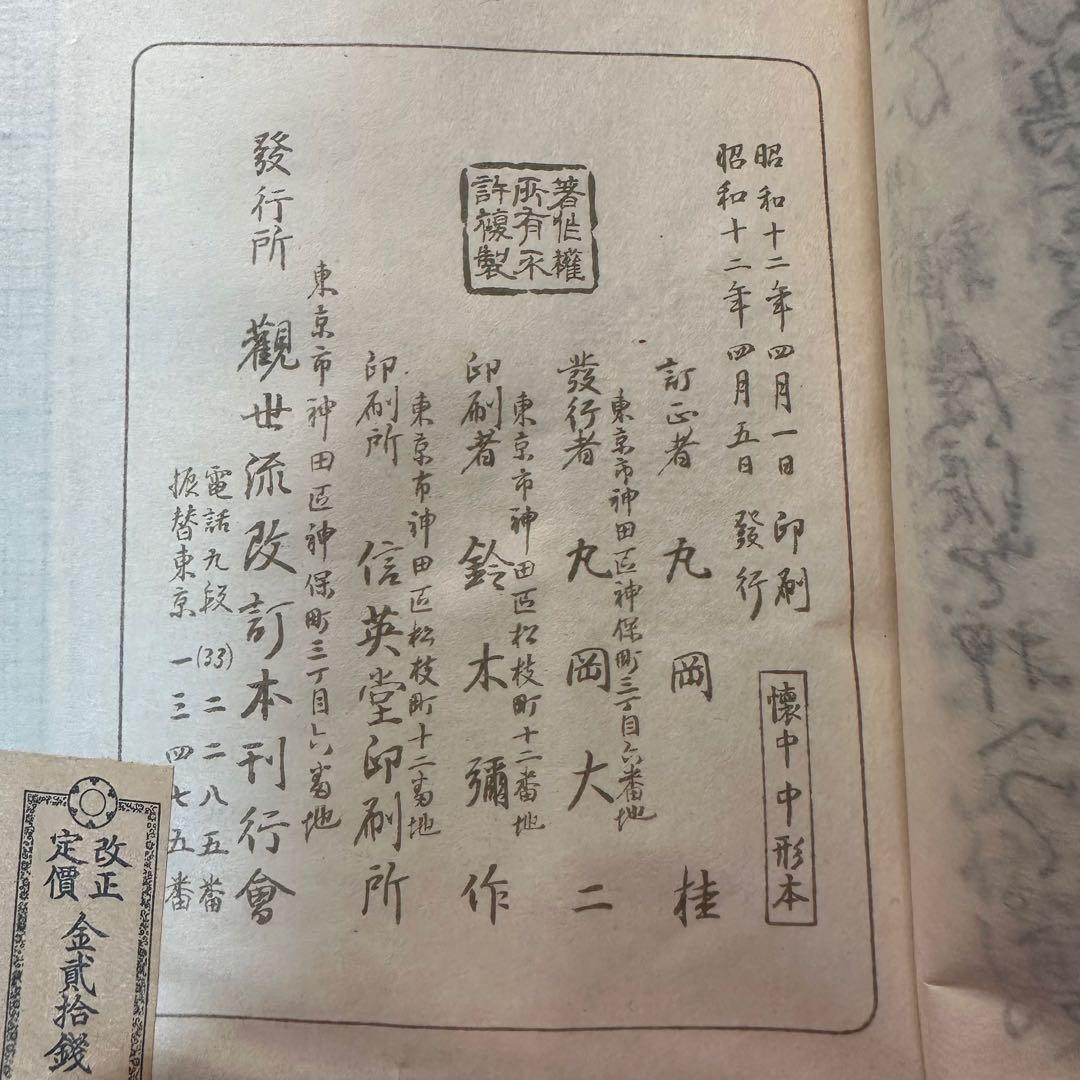 昭和十二年四月一日 印刷
昭和十二年四月五日 發行
懷中中形本
訂正者 丸岡桂
東京市神田區神保町三丁目六番地
發行者 丸岡大二
東京市神田區松枝町十二番地
印刷者 鈴木彌作
東京市神田區松枝町十二番地
印刷所 信英堂印刷所
著作權
所有不
許複製
東京市神田區神保町三丁目六番地
發行所 觀世流改訂本刊行會
電話九段(33)二二八五番
振替東京一三四七五番
改正
定價
金貳拾錢